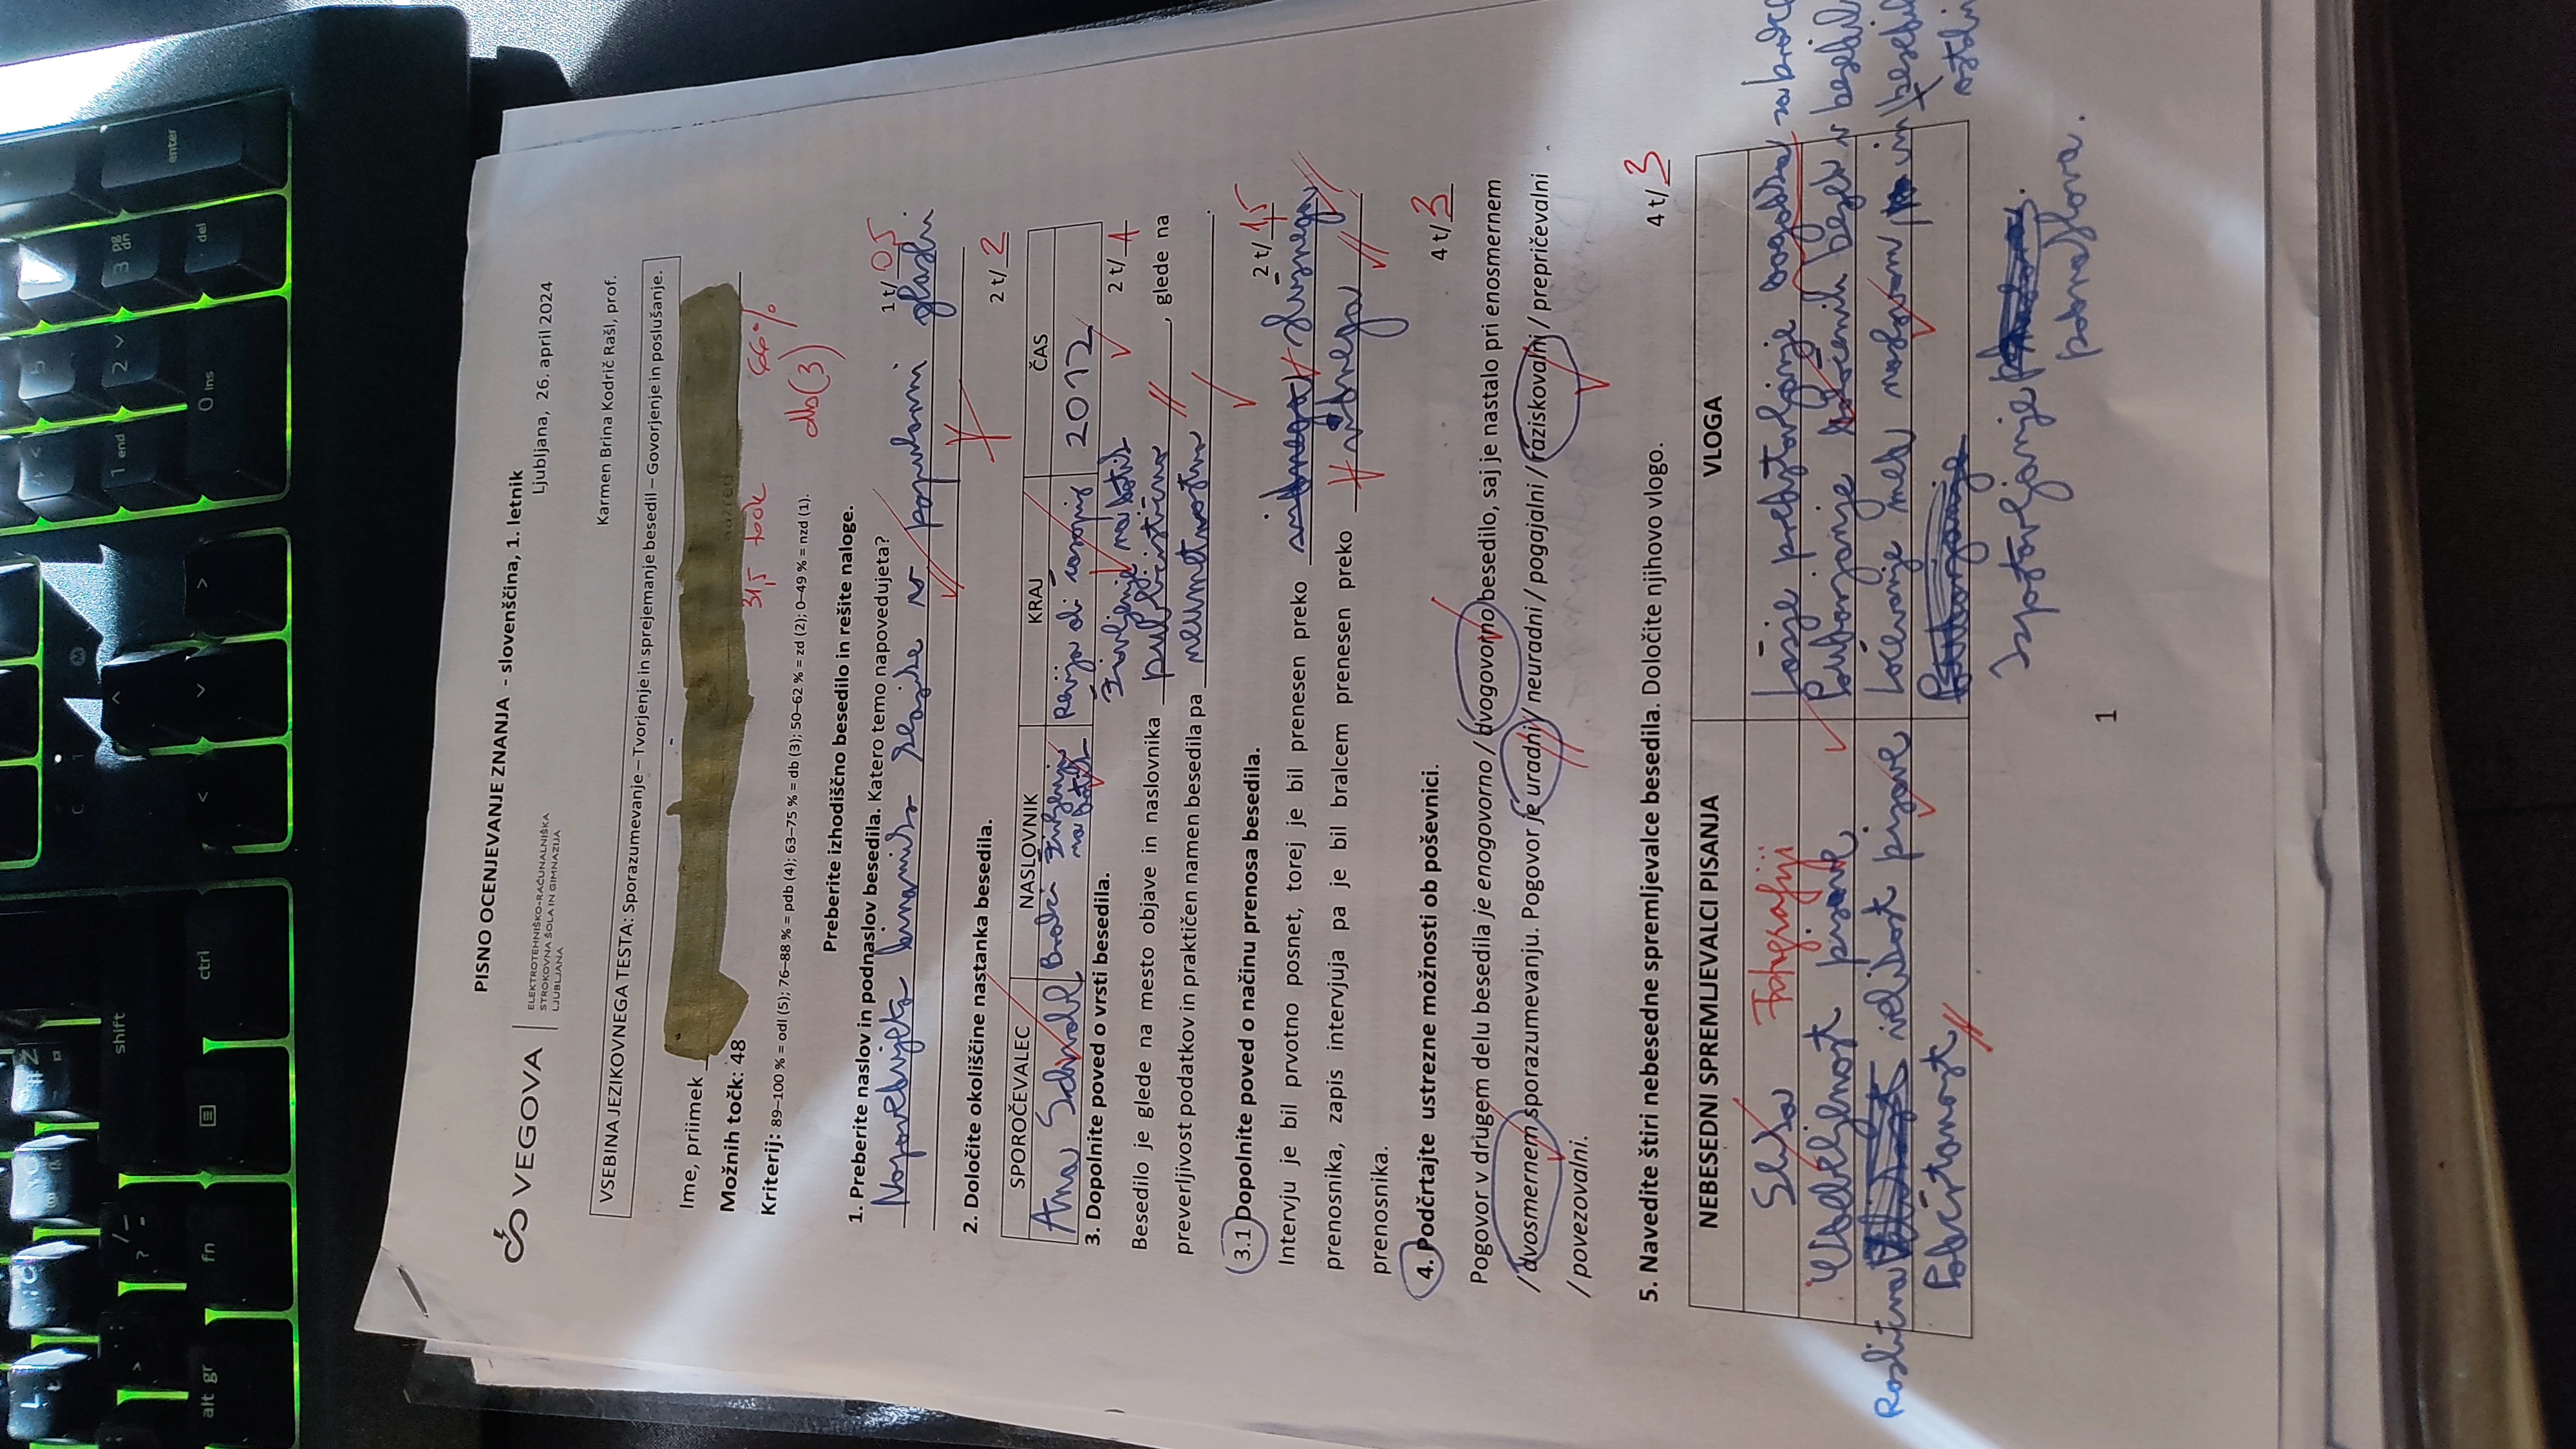 shift
alt gr
fn
ctrl
1 end
2
3 pg dn
enter
0 Ins
del
PISNO OCENJEVANJE ZNANJA - slovenščina, 1. letnik
VEGOVA
ELEKTROTEHNIŠKO-RAČUNALNIŠKA
STROKOVNA ŠOLA IN GIMNAZIJA
LJUBLJANA
Ljubljana, 26. april 2024
Karmen Brina Kodrič Rašl, prof.
VSEBINA JEZIKOVNEGA TESTA: Sporazumevanje – Tvorjenje in sprejemanje besedil – Govorjenje in poslušanje.
Ime, priimek
Možnih točk: 48
31,5 točk 66%
Kriterij: 89–100 % = odl (5); 76–88 % = pdb (4); 63–75 % = db (3); 50–62 % = zd (2); 0–49 % = nzd (1).
db(3)
Preberite izhodiščno besedilo in rešite naloge.
1. Preberite naslov in podnaslov besedila. Katero temo napovedujeta? 1 t/ 0,5
Napovedujeta v popularni glasbi
2. Določite okoliščine nastanka besedila. 2 t/ 2
SPOROČEVALEC NASLOVNIK KRAJ ČAS
Ana Bralci življenja na dotik Revija ali časopis 2012
Življenje na dotik
3. Dopolnite poved o vrsti besedila. 2 t/ 1
Besedilo je glede na mesto objave in naslovnika publicistično, glede na
preverljivost podatkov in praktičen namen besedila pa neumetnostno.
3.1 Dopolnite poved o načinu prenosa besedila. 2 t/ 1,5
Intervju je bil prvotno posnet, torej je bil prenesen preko slušnega
prenosnika, zapis intervjuja pa je bil bralcem prenesen preko vidnega
prenosnika.
4. Podčrtajte ustrezne možnosti ob poševnici. 4 t/ 3
Pogovor v drugem delu besedila je enogovorno / dvogovorno besedilo, saj je nastalo pri enosmernem
/ dvosmernem sporazumevanju. Pogovor je uradni / neuradni / pogajalni / raziskovalni / prepričevalni
/ povezovalni.
5. Navedite štiri nebesedne spremljevalce besedila. Določite njihovo vlogo. 4 t/ 3
NEBESEDNI SPREMLJEVALCI PISANJA VLOGA
Slika Fotografiji Lažje predstavljanje dogodka za bralce
Odebeljenost pisave Poudarjanje določenih besed v besedilu
Različna velikost pisave Ločevanje med naslovom, in besedilom
Podčrtanost
Izpostavljanje
podnaslova.
1